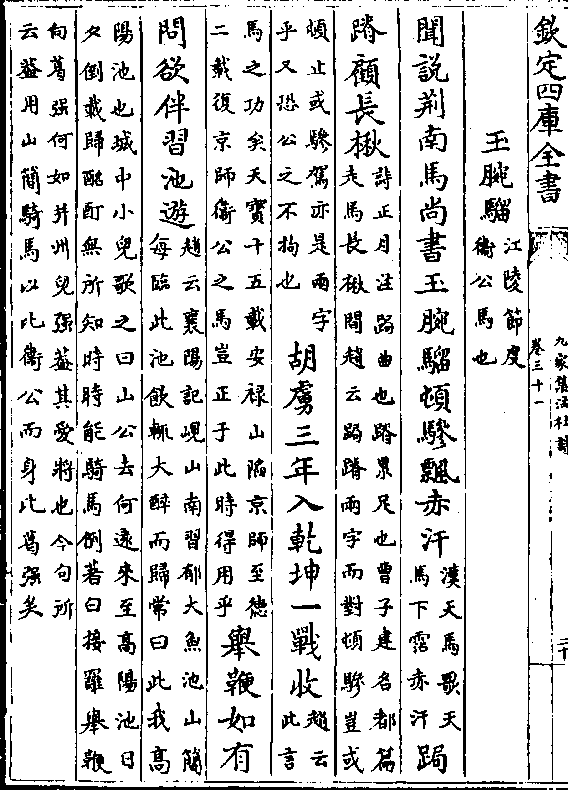 欽定四庫全書
九家集注杜詩
卷三十一
玉腕騮
江陵節度
衞公馬也
聞說荆南馬尚書玉腕騮頓驂飄赤汗
漢天馬歌天
馬下霑赤汗
跼
蹐顧長楸
詩正月注跼曲也蹐累足也曹子建名都篇
走馬長楸間趙云跼蹐兩字而對頓驂豈或
頓止或驂駕亦是兩字
乎又恐公之不拘也
胡虜三年入乾坤一戰收
趙云
此言
馬之功矣天寶十五載安禄山陷京師至德
二載復京師衞公之馬豈正于此時得用乎
舉鞭如有
問欲伴習池遊
趙云襄陽記峴山南習郁大魚池山簡
每臨此池飲輒大醉而歸常曰此我高
陽池也城中小兒歌之曰山公去何遠來至高陽池日
夕倒載歸酩酊無所知時時能騎馬倒著白接羅舉鞭
向葛强何如并州兒强葢其愛將也今句所
云葢用山簡騎馬以比衞公而身比葛强矣